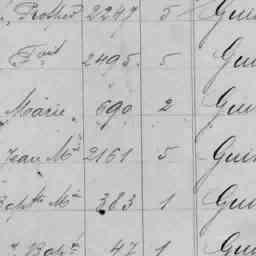 Prosper 2247 5 Gui
2495 5 Gui
Marie 690 2 Gui
Jean Mie 2161 5 Gui
Bapte Mie 383 1 Gui
J Bapte 47 1 Gui